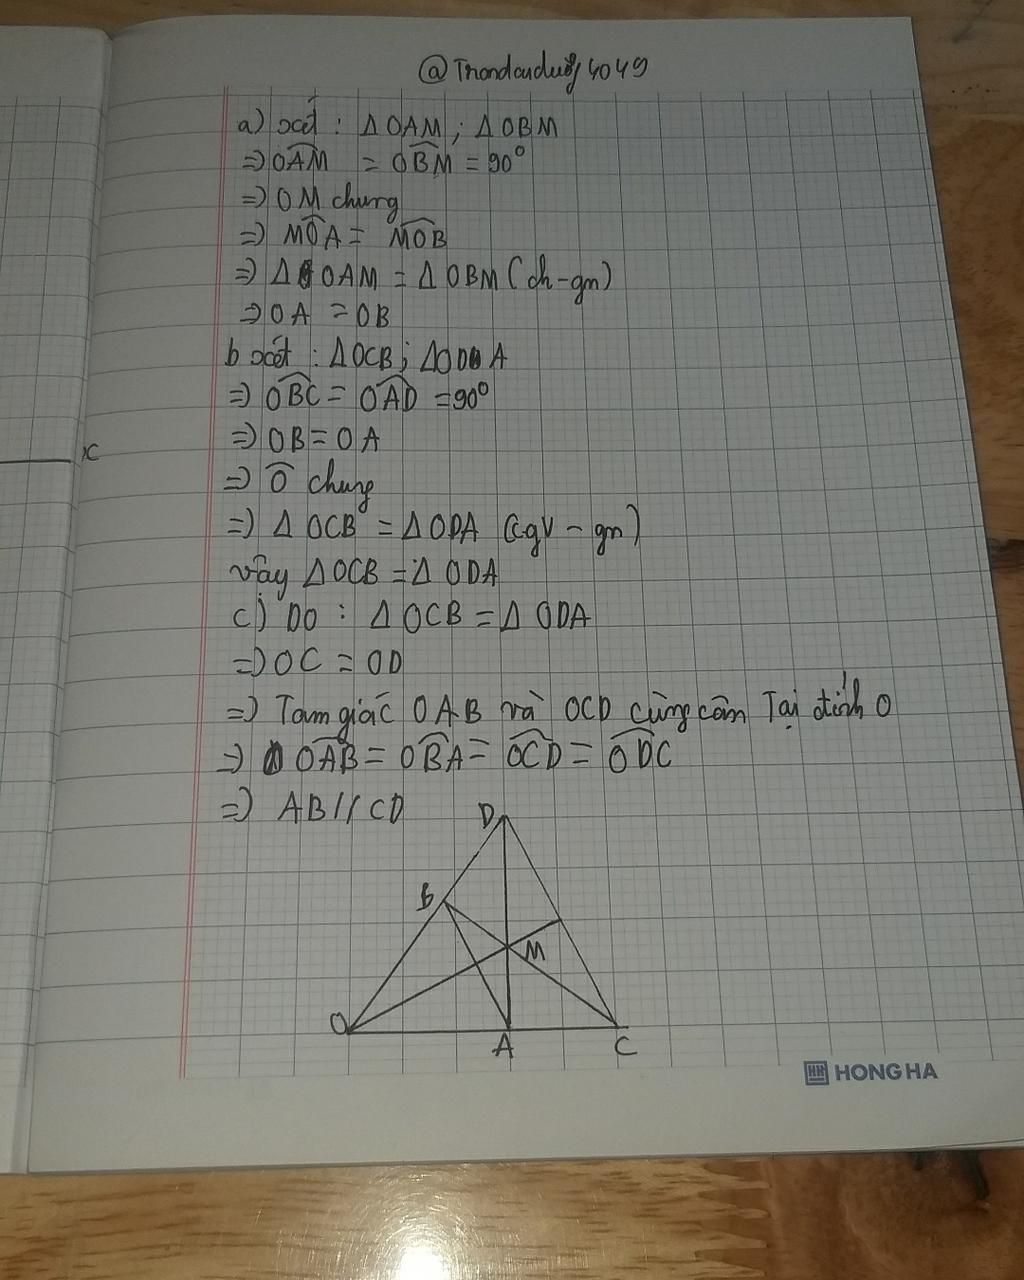 a) xét : Δ OAM ; Δ OBM
=> OAM = OBM = 90°
=> OM chung
=> MOA = MOB
=> Δ OAM = Δ OBM (ch-gn)
=> OA = OB
b xét : ΔOCB ; ΔOD A
=> OBC = OAD = 90°
=> OB = OA
=> O chung
=> Δ OCB = Δ ODA (cgv - gn)
vậy Δ OCB = Δ ODA
c) DO : Δ OCB = Δ ODA
=> OC = OD
=> Tam giác OAB và OCD cùng cân Tại đỉnh O
=> OAB = OBA = OCD = ODC
=> AB // CD
D
B
M
O
A
C
x
HONG HA